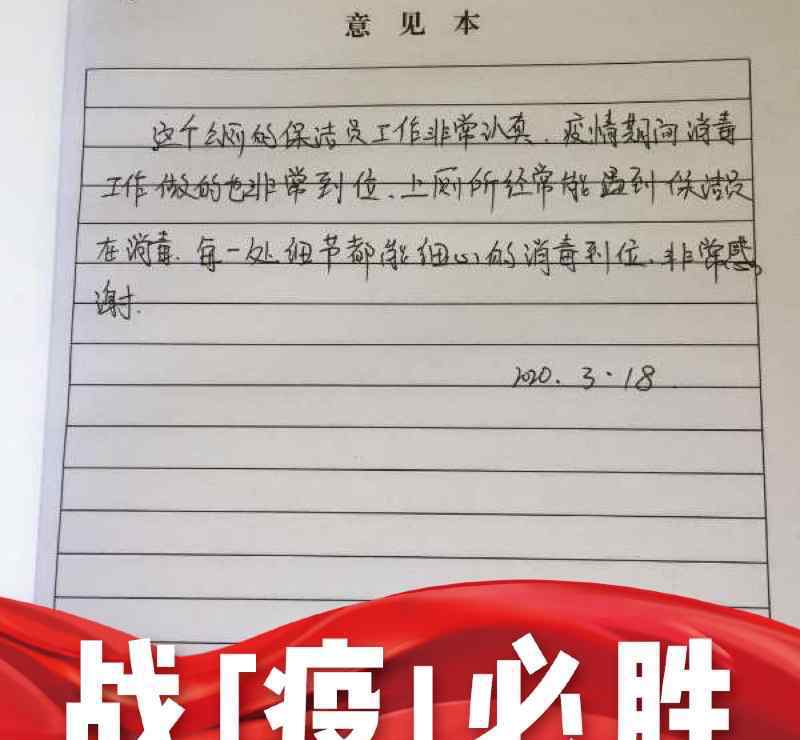 意见本
这个公厕的保洁员工作非常认真.疫情期间消毒
工作做的也非常到位.上厕所经常能遇到保洁员
在消毒.每一处细节都能细心的消毒到位.非常感
谢.
2020.3.18
战「疫」必胜